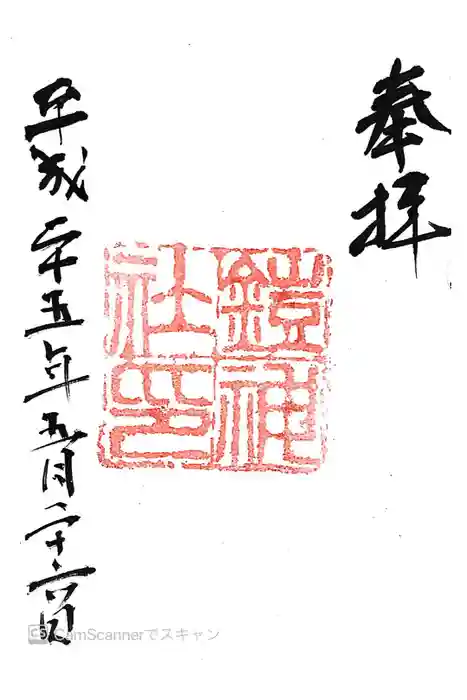 奉拝
鎧神社印
平成二十五年五月二十六日
CS CamScannerでスキャン